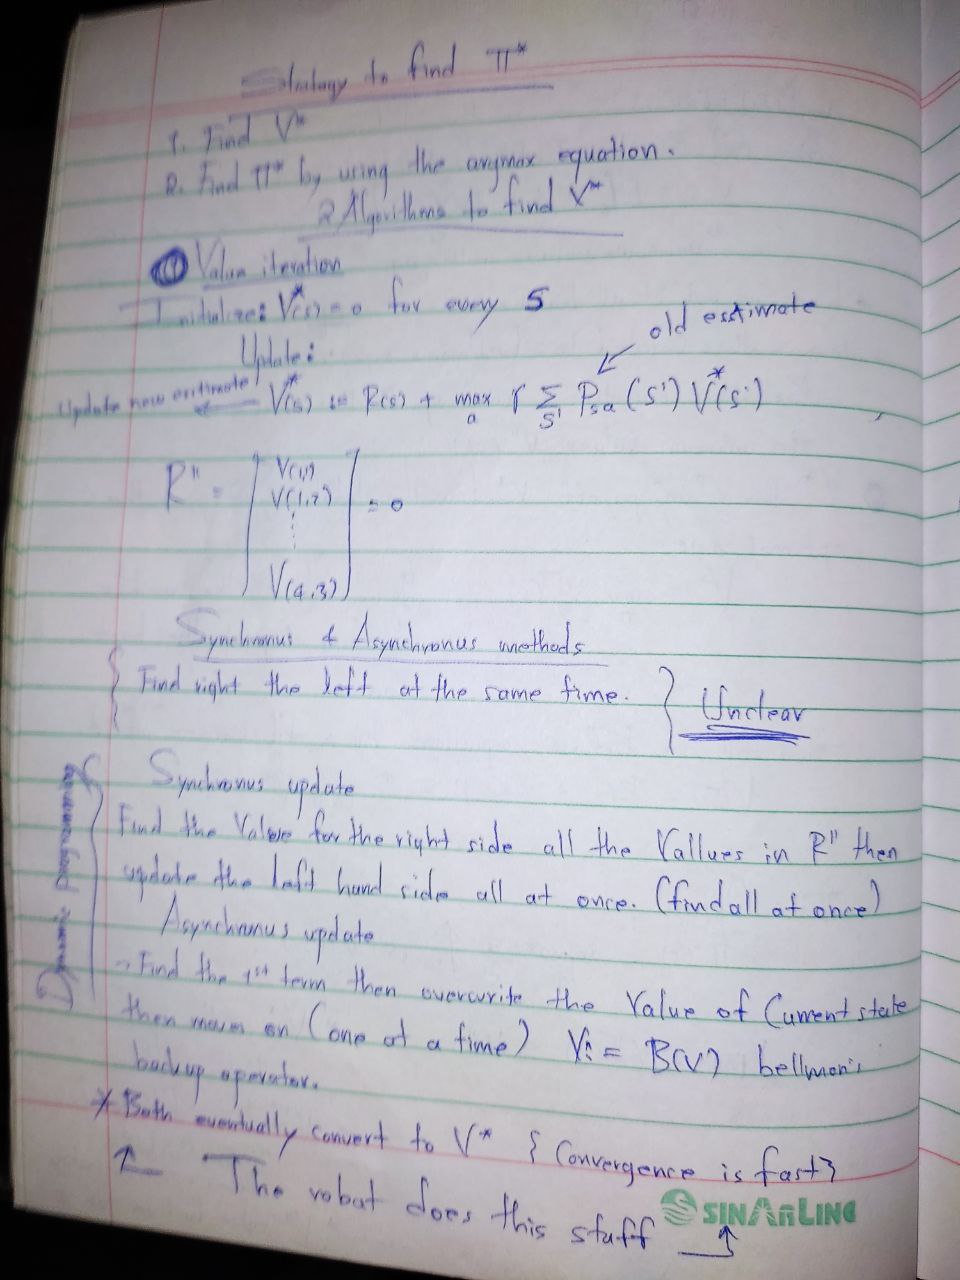 Strategy to find π*
1. Find V*
2. Find π* by using the argmax equation.
2 Algorithms to find V*
① Value iteration
Initialize: V*(s) = 0 for every S
Update:
old esstimate
Update new esstimate V*(s) := R(s) + max_a γ Σ_s' P_sa (s') V*(s')
R" = [ V(1,1)
V(1,2)
⋮
V(4,3) ] = 0
Synchronus & Asynchronus methods
{ Find right the left at the same time. } Unclear
Dynamic programming
Synchronus update
Find the Value for the right side all the Vallues in R" then
update the left hand side all at once. (find all at once)
Asynchronus update
- Find the 1st term then overwrite the Value of Current state
then move on (one at a time) V := B(V) bellman's
backup operator.
* Both eventually convert to V* { Convergence is fast }
↑ The robat does this stuff ↑
SINARLINE